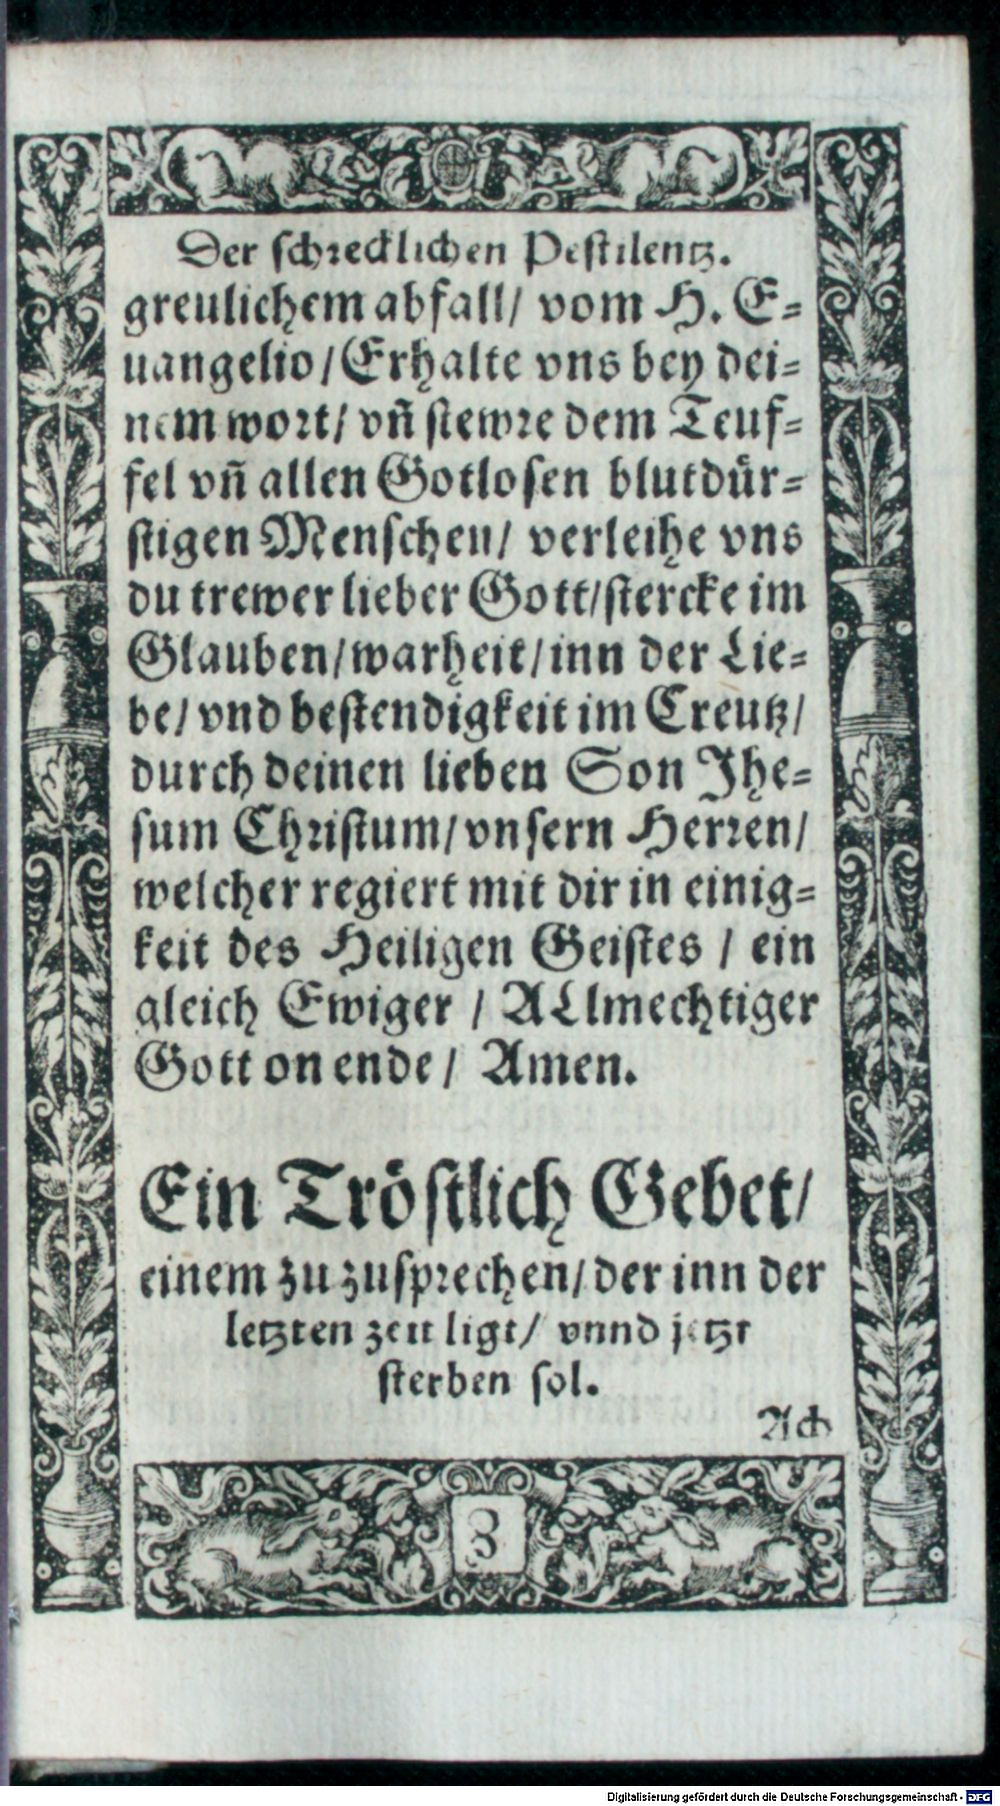 Der schrecklichen Pestilentz.
greulichem abfall/ vom H. E-
uangelio/ Erhalte vns bey dei-
nem wort/ vñ stewre dem Teuf-
fel vñ allen Gotlosen blutdür-
stigen Menschen/ verleihe vns
du trewer lieber Gott/ stercke im
Glauben/ warheit/ inn der Lie-
be/ vnd bestendigkeit im Creutz/
durch deinen lieben Son Jhe-
sum Christum/ vnsern Herren/
welcher regiert mit dir in einig-
keit des Heiligen Geistes / ein
gleich Ewiger / ALlmechtiger
Gott on ende / Amen.
Ein Tröstlich Gebet/
einem zu zusprechen/ der inn der
letzten zeit ligt/ vnnd jetzt
sterben sol.
Ach
3
Digitalisierung gefördert durch die Deutsche Forschungsgemeinschaft - DFG